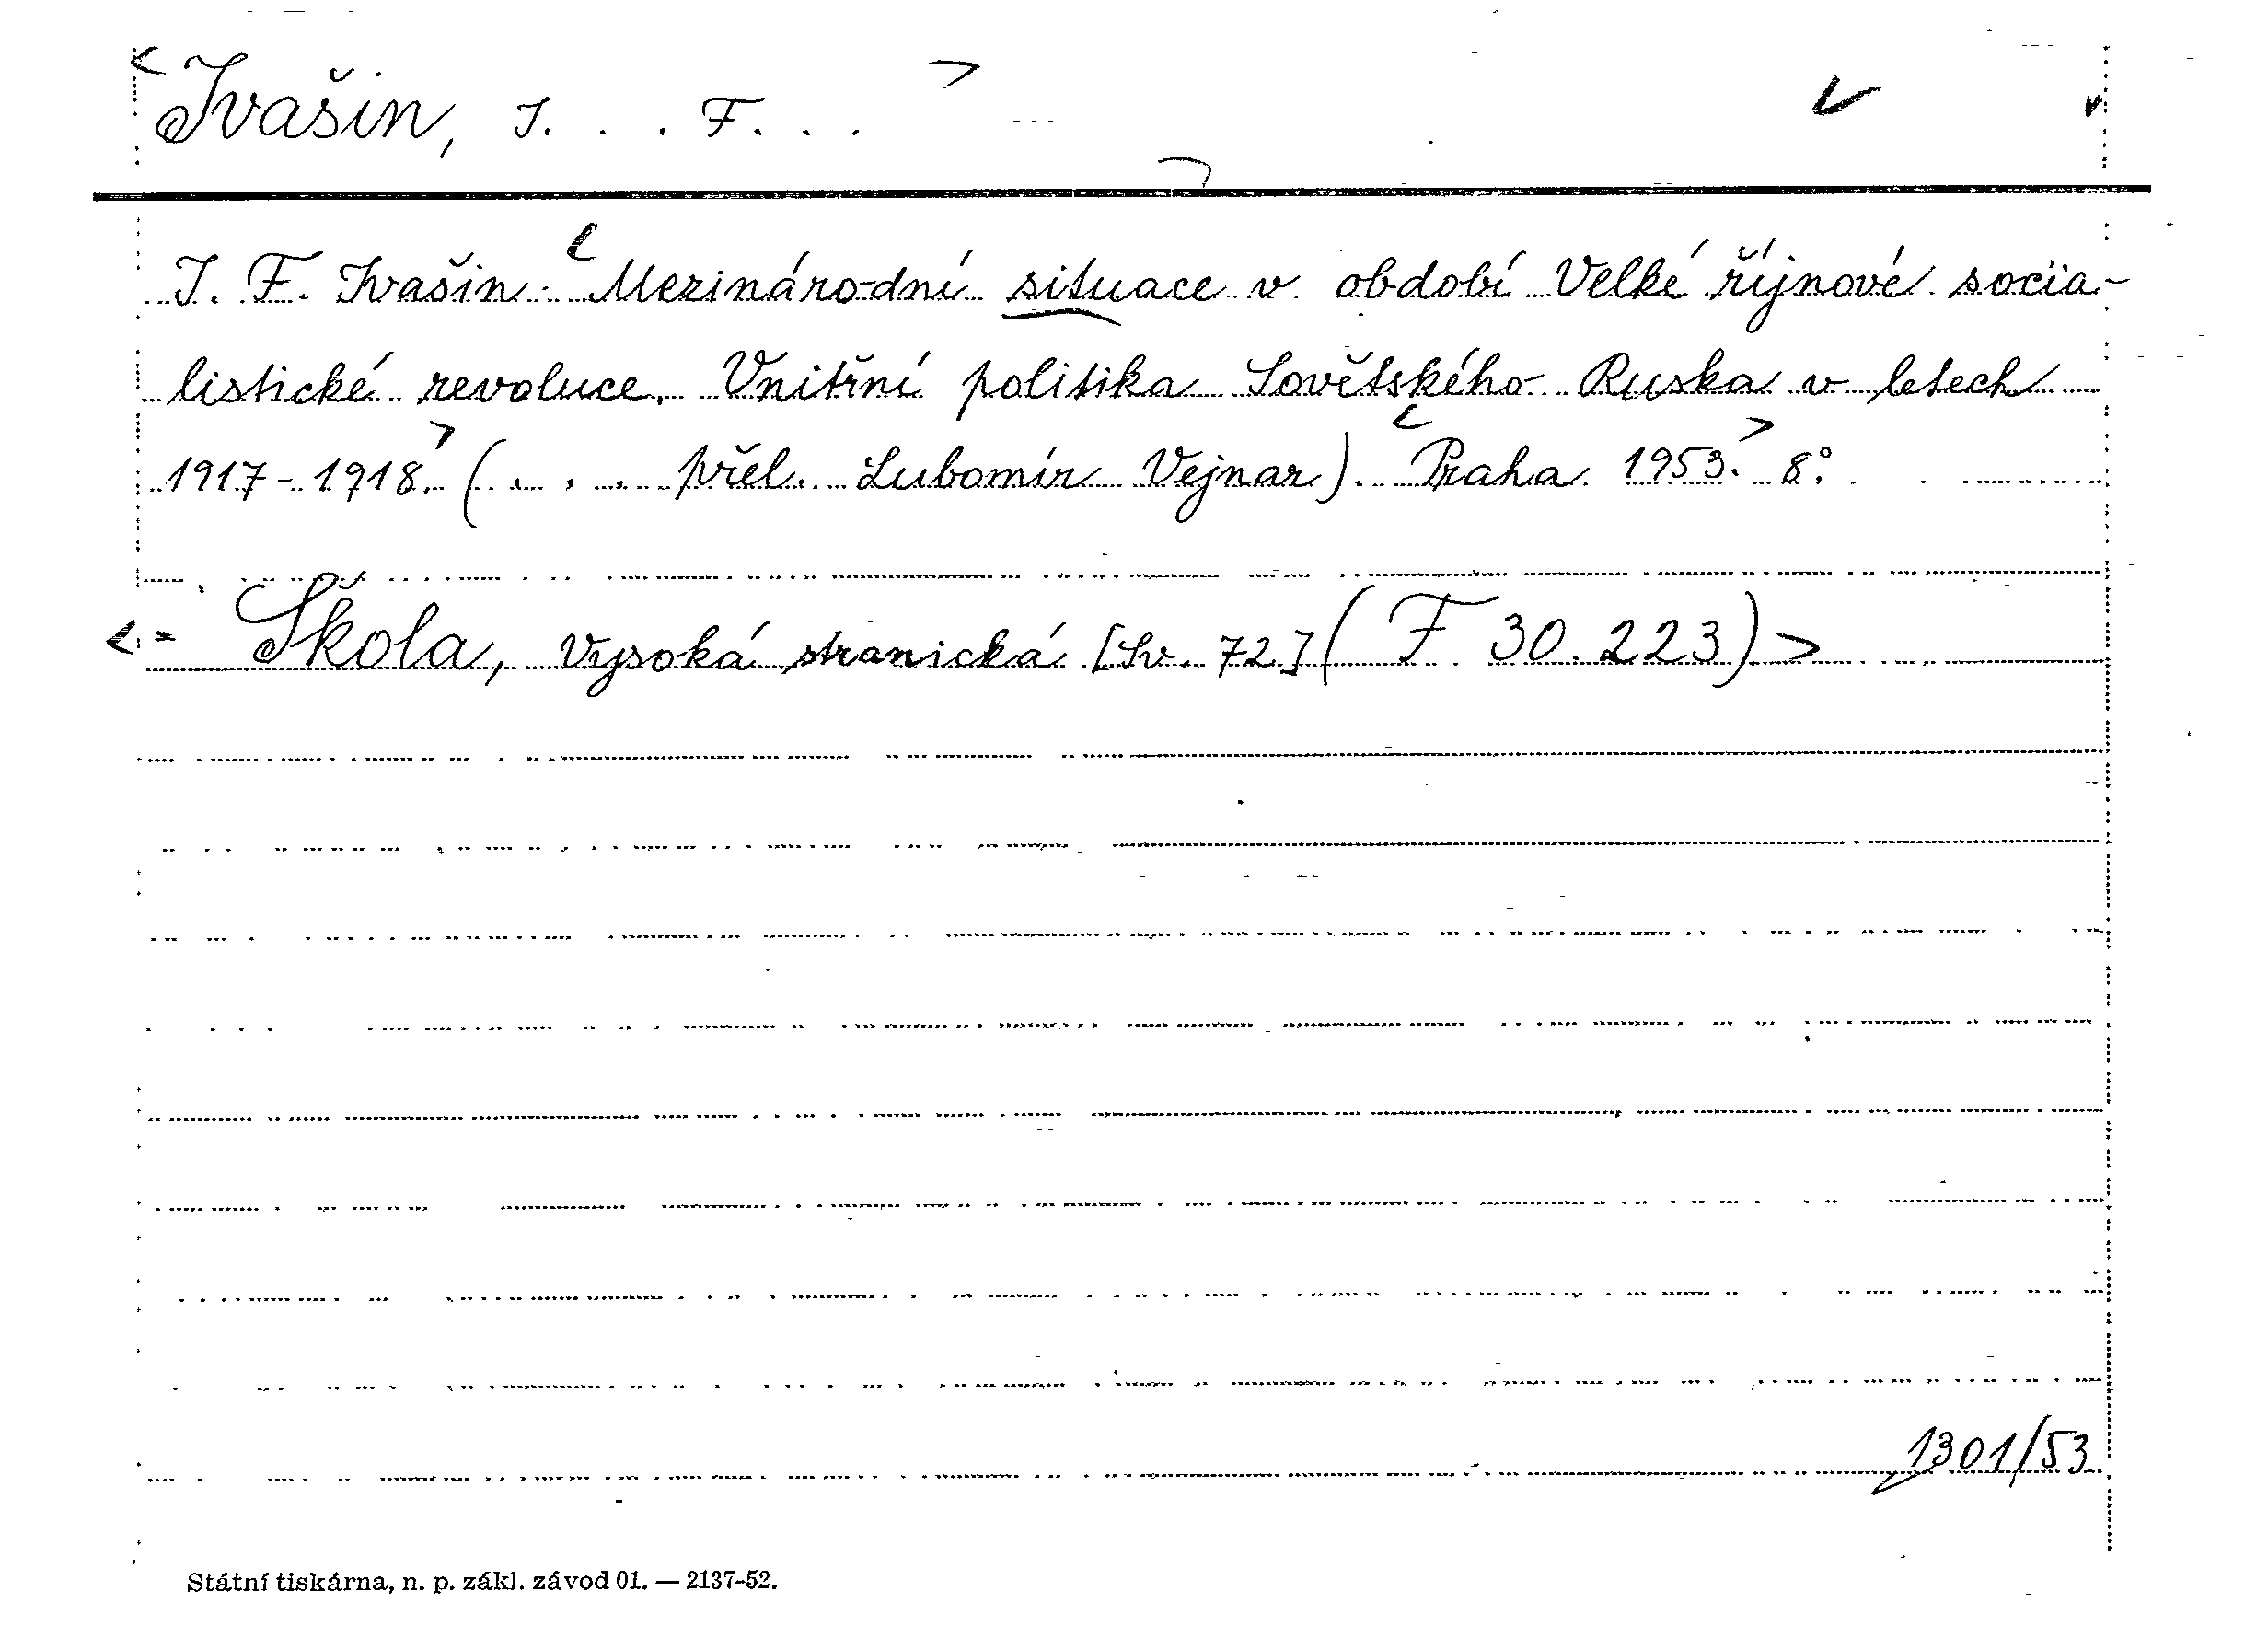 Ivašin, I. . . F. . .
I. F. Ivašin: Mezinárodní situace v období Velké říjnové socia-
listické revoluce. Vnitřní politika Sovětského Ruska v letech
1917-1918. (. . . přel. Lubomír Vejnar). Praha 1953. 8°.
= Škola, Vysoká stranická [Sv. 72] (F 30.223)
1301/53
Státní tiskárna, n. p. zákl. závod 01. — 2137-52.